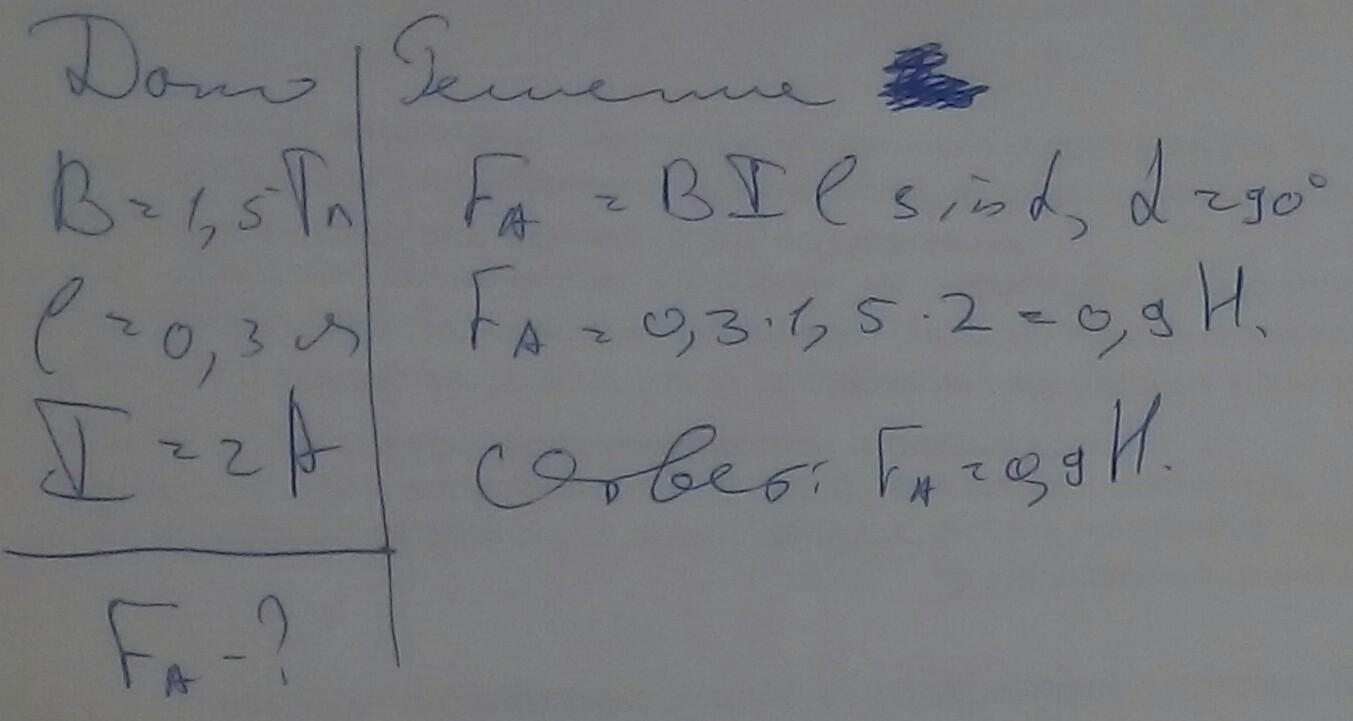 Дано
B = 1,5 Тл
l = 0,3 м
I = 2 А
Fа - ?
Решение
Fа = B I l sin α, α = 90°
Fа = 0,3 · 1,5 · 2 = 0,9 Н.
Ответ: Fа = 0,9 Н.